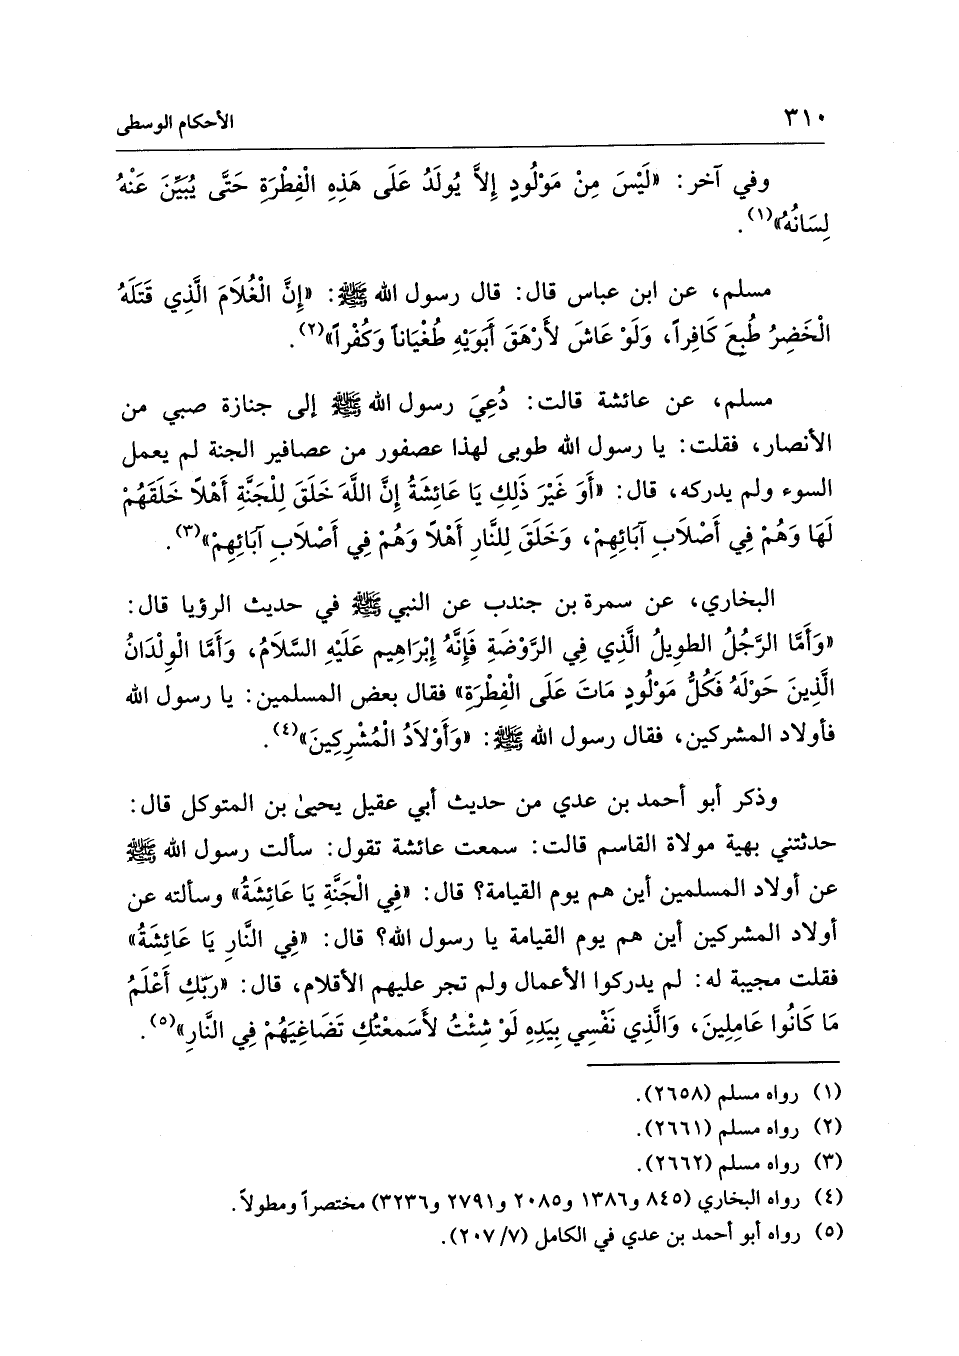 ٣١٠ الأحكام الوسطى
وفي آخر: «لَيْسَ مِنْ مَوْلُودٍ إِلاَّ يُولَدُ عَلَى هَذِهِ الْفِطْرَةِ حَتَّى يُبَيِّنَ عَنْهُ
لِسَانُهُ»(١).
مسلم، عن ابن عباس قال: قال رسول الله ﷺ: «إِنَّ الْغُلَامَ الَّذِي قَتَلَهُ
الْخَضِرُ طُبِعَ كَافِراً، وَلَوْ عَاشَ لأَرْهَقَ أَبَوَيْهِ طُغْيَاناً وَكُفْراً»(٢).
مسلم، عن عائشة قالت: دُعِيَ رسول الله ﷺ إلى جنازة صبي من
الأنصار، فقلت: يا رسول الله طوبى لهذا عصفور من عصافير الجنة لم يعمل
السوء ولم يدركه، قال: «أَوَ غَيْرَ ذَلِكِ يَا عَائِشَةُ إِنَّ اللَّهَ خَلَقَ لِلْجَنَّةِ أَهْلاً خَلَقَهُمْ
لَهَا وَهُمْ فِي أَصْلَابِ آبَائِهِمْ، وَخَلَقَ لِلنَّارِ أَهْلاً وَهُمْ فِي أَصْلَابِ آبَائِهِمْ»(٣).
البخاري، عن سمرة بن جندب عن النبي ﷺ في حديث الرؤيا قال:
«وَأَمَّا الرَّجُلُ الطويلُ الَّذِي فِي الرَّوْضَةِ فَإِنَّهُ إِبْرَاهِيم عَلَيْهِ السَّلَامُ، وَأَمَّا الْوِلْدَانُ
الَّذِينَ حَوْلَهُ فَكُلُّ مَوْلُودٍ مَاتَ عَلَى الْفِطْرَةِ» فقال بعض المسلمين: يا رسول الله
فأولاد المشركين، فقال رسول الله ﷺ: «وَأَوْلَادُ الْمُشْرِكِينَ»(٤).
وذكر أبو أحمد بن عدي من حديث أبي عقيل يحيىٰ بن المتوكل قال:
حدثتني بهية مولاة القاسم قالت: سمعت عائشة تقول: سألت رسول الله ﷺ
عن أولاد المسلمين أين هم يوم القيامة؟ قال: «فِي الْجَنَّةِ يَا عَائِشَةُ» وسألته عن
أولاد المشركين أين هم يوم القيامة يا رسول الله؟ قال: «فِي النَّارِ يَا عَائِشَةُ»
فقلت مجيبة له: لم يدركوا الأعمال ولم تجر عليهم الأقلام، قال: «رَبّكِ أَعْلَمُ
مَا كَانُوا عَامِلِينَ، وَالَّذِي نَفْسِي بِيَدِهِ لَوْ شِئْتُ لأَسَمعْتُكِ تَضَاغِيَهُمْ فِي النَّارِ»(٥).
(١) رواه مسلم (٢٦٥٨).
(٢) رواه مسلم (٢٦٦١).
(٣) رواه مسلم (٢٦٦٢).
(٤) رواه البخاري (٨٤٥ و١٣٨٦ و٢٠٨٥ و٢٧٩١ و٣٢٣٦) مختصراً ومطولاً.
(٥) رواه أبو أحمد بن عدي في الكامل (٧/ ٢٠٧).